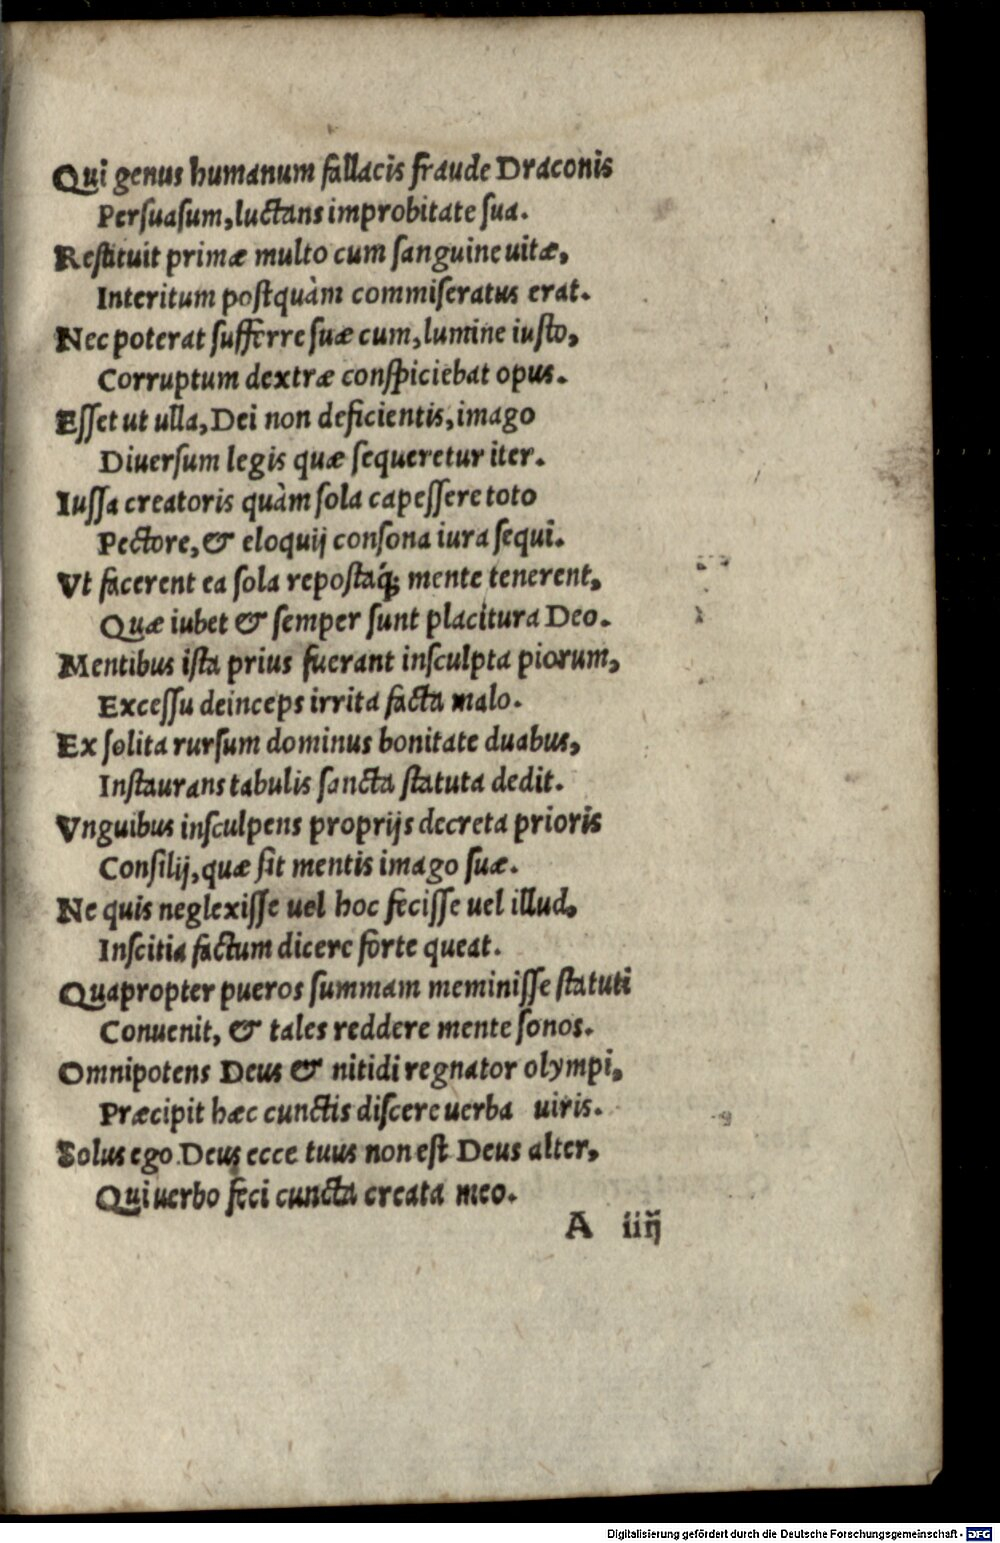 Qui genus humanum fallacis fraude Draconis
Persuasum, luctans improbitate sua.
Restituit primæ multo cum sanguine uitæ,
Interitum postquàm commiseratus erat.
Nec poterat sufferre suæ cum, lumine iusto,
Corruptum dextræ conspiciebat opus.
Esset ut ulla, Dei non deficientis, imago
Diuersum legis quæ sequeretur iter.
Iussa creatoris quàm sola capessere toto
Pectore, & eloquij consona iura sequi.
Vt facerent ea sola repostaq́; mente tenerent,
Quæ iubet & semper sunt placitura Deo.
Mentibus ista prius fuerant insculpta piorum,
Excessu deinceps irrita facta malo.
Ex solita rursum dominus bonitate duabus,
Instaurans tabulis sancta statuta dedit.
Vnguibus insculpens proprijs decreta prioris
Consilij, quæ sit mentis imago suæ.
Ne quis neglexisse uel hoc fecisse uel illud,
Inscitia factum dicere forte queat.
Quapropter pueros summam meminisse statuti
Conuenit, & tales reddere mente sonos.
Omnipotens Deus & nitidi regnator olympi,
Præcipit hæc cunctis discere uerba uiris.
Solus ego Deus ecce tuus non est Deus alter,
Qui uerbo feci cuncta creata meo.
A iiij
Digitalisierung gefördert durch die Deutsche Forschungsgemeinschaft - DFG